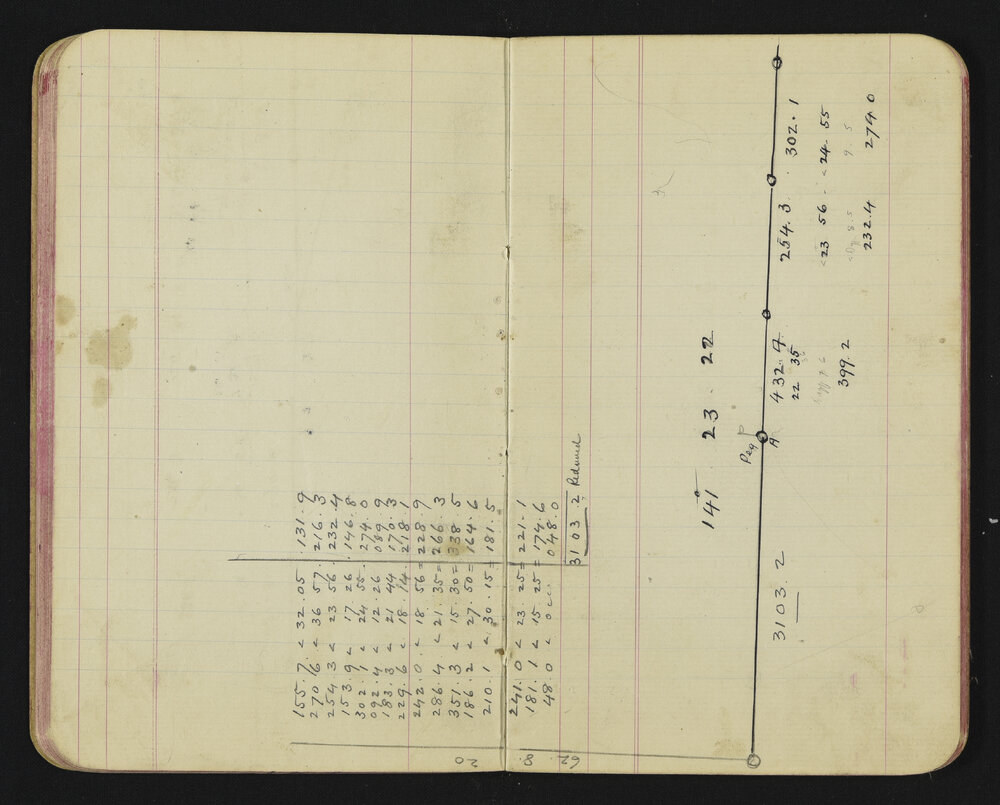 155.7 < 32.05 . 131.9
270.6 < 36 57 . 216.3
254.3 < 23 56 . 232.4
153.9 < 17 26 . 146.8
302.1 < 24 55 . 274.0
092.4 < 12 26 089.9
183.3 < 21 44 170.3
229.6 < 18.14 218.1
242.0 < 18 56 = 228.9
286.4 < 21.35 = 266.3
351.3 < 15.30 = 338.5
186.2 < 27.50 = 164.6
210.1 < 30.15 = 181.5
241.0 < 23 25 = 221.1
181.1 < 15 25 = 174.6
48.0 < 048.0
3103.2 Reduced
20
8.
62
141° 23 . 22
Peg P
A
3103.2
432.4 254.3 302.1
22 35 < 23 56 < 24.55
8.5 9.5
399.2 232.4 274.0